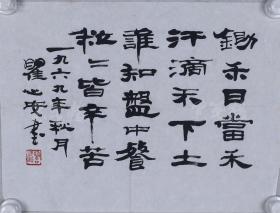 鋤禾日當午
汗滴禾下土
誰知盤中餐
粒〻皆辛苦
一九六九年秋月
瞿心安書